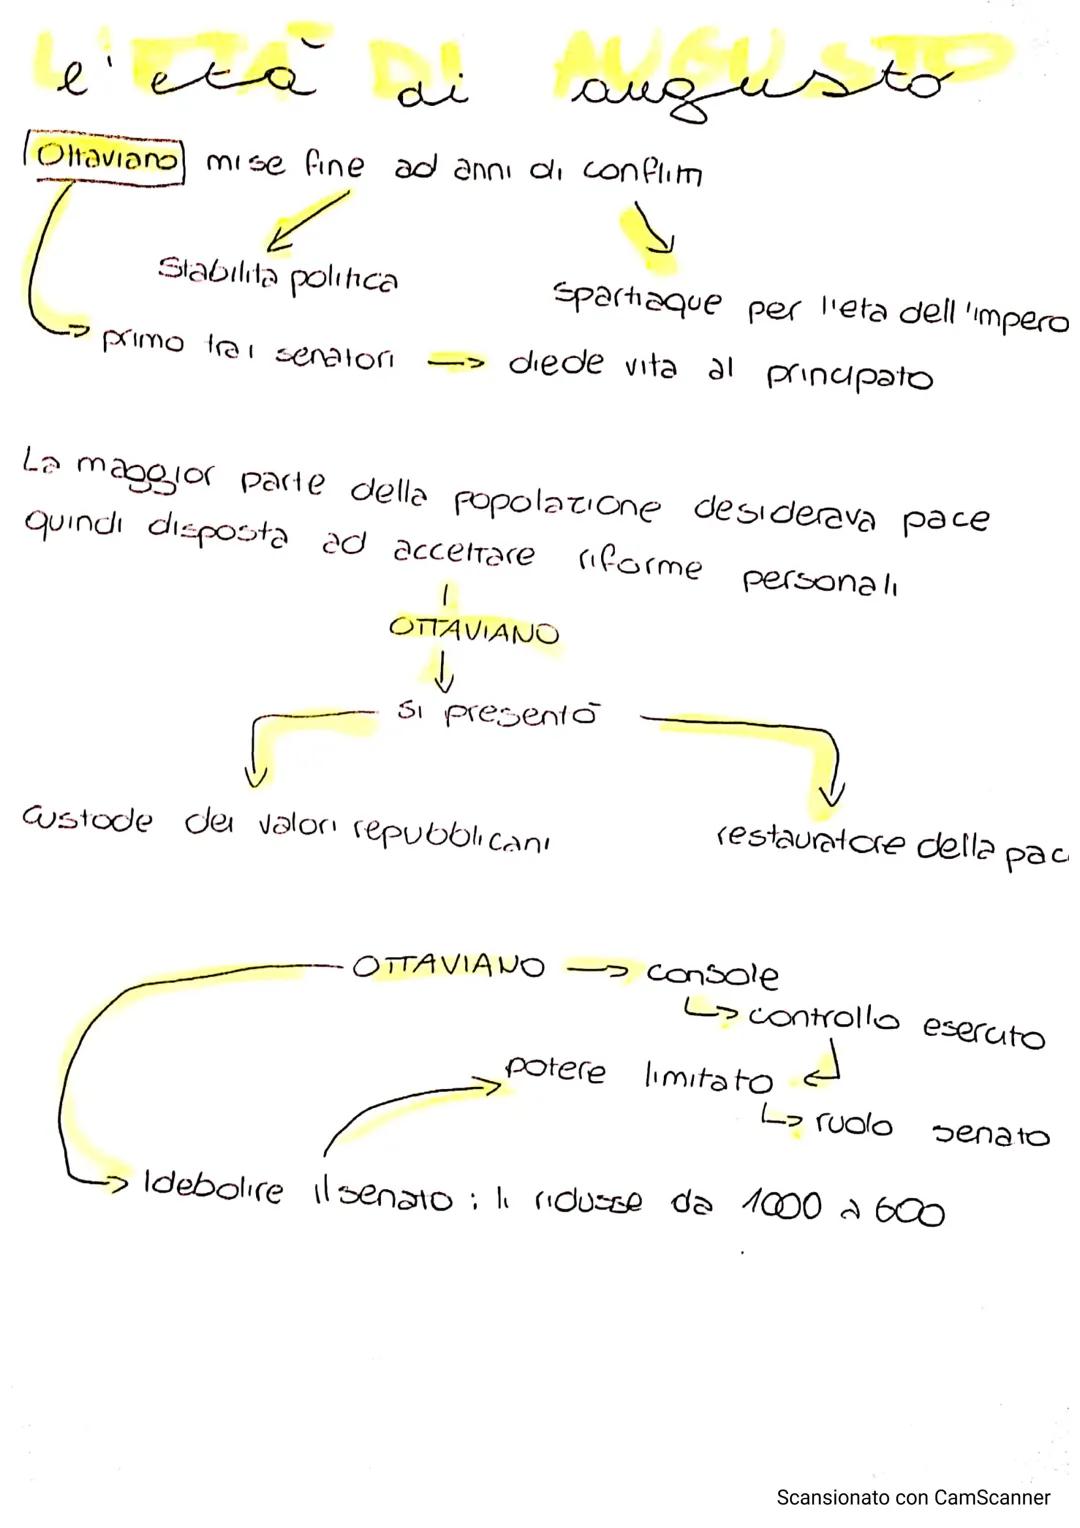 L'ETÀ DI AUGUSTO
l'età di augusto
Ottaviano mise fine ad anni di conflitti
Stabilità politica
spartiaque per l'eta dell'impero
primo tra i senatori → diede vita al principato
La maggior parte della popolazione desiderava pace
quindi disposta ad accettare riforme personali
OTTAVIANO
si presentò
custode dei valori repubblicani
restauratore della pac
OTTAVIANO → console
↳ controllo esercito
potere limitato
↳ ruolo senato
→ Idebolire il senato : li ridusse da 1000 a 600
Scansionato con CamScanner